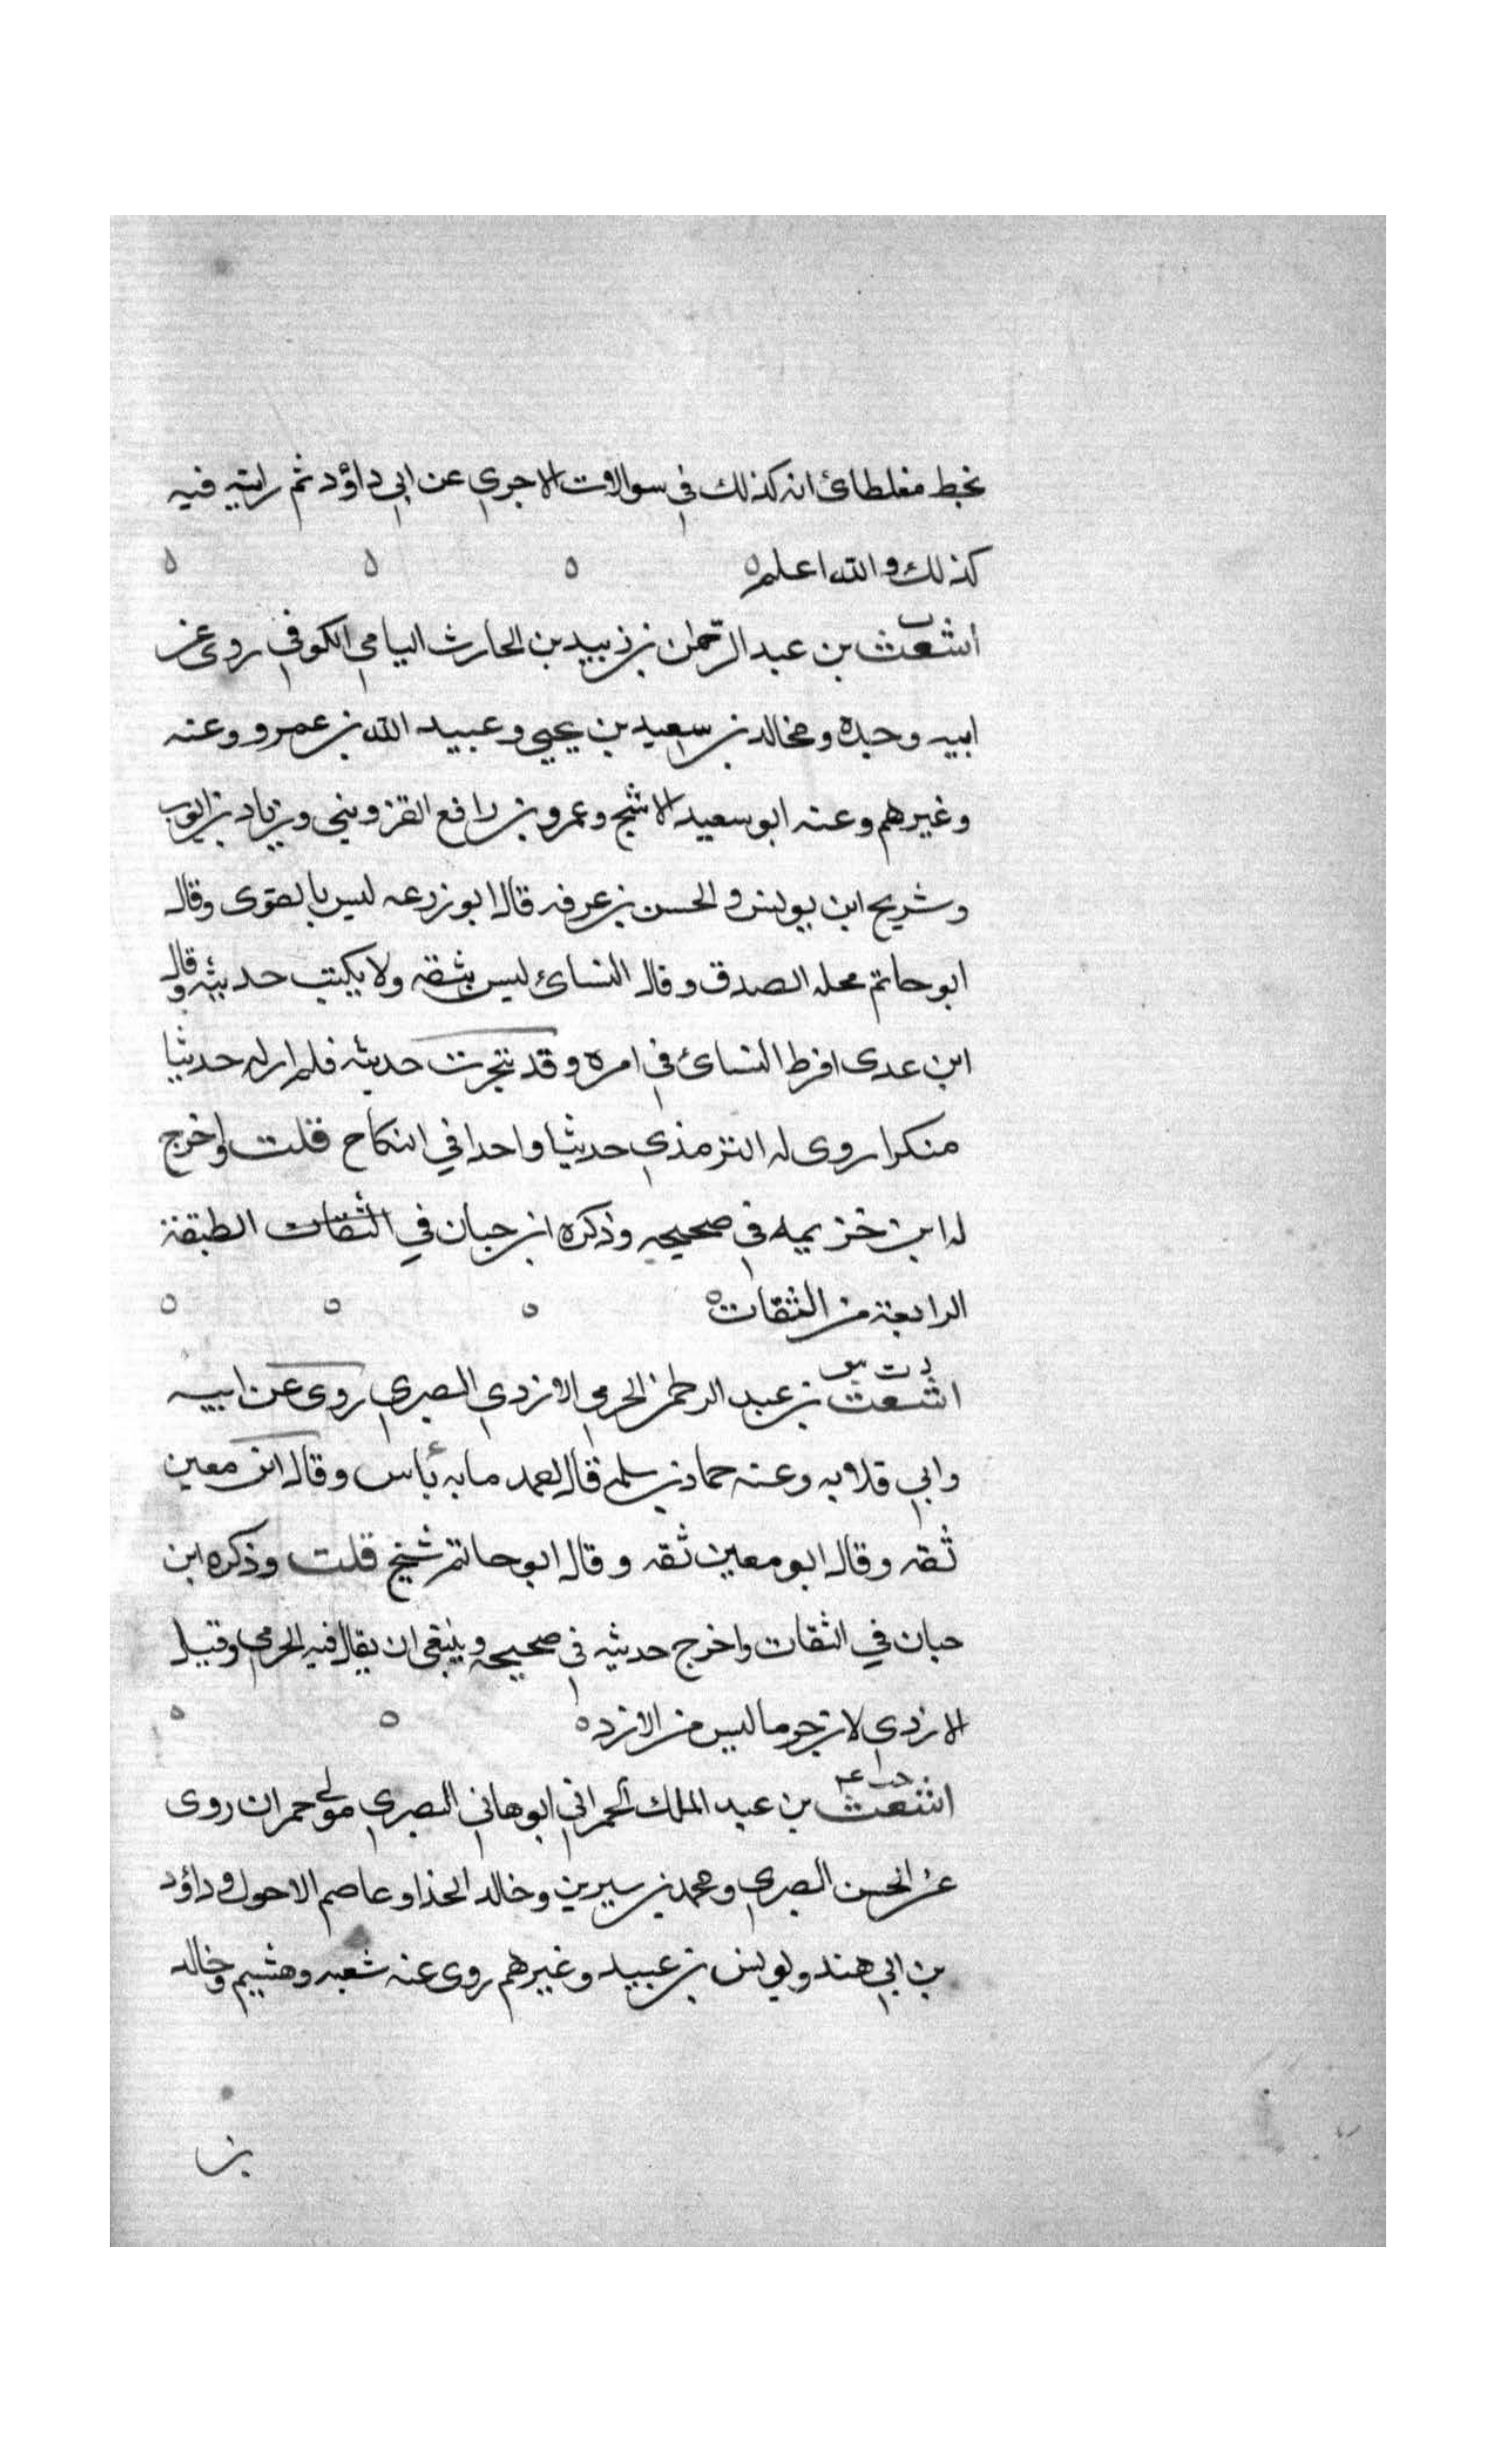 بخط مغلطائ انه كذلك في سوالات الاجري عن ابي داؤد ثم رايته فيه
كذلك والله اعلم ه ه ه ه
ت
اشعث بن عبد الرحمن بن زبيد بن الحارث اليامي الكوفي روى عن
ابيه وجده ومجالد بن سعيد بن يحيى وعبيد الله بن عمرو وعنه
وغيرهم وعنه ابو سعيد الاشج وعمرو بن رافع القزويني وزياد بن ايوب
وشريح ابن يونس والحسن بن عرفه قال ابو زرعه ليس بالقوى وقال
ابو حاتم محله الصدق وقال النسائ ليس بثقه ولا يكتب حديثه وقال
ابن عدى افرط النسائ في امره وقد تبحرت حديثه فلم ار له حديثا
منكرا روى له الترمذي حديثا واحدا في النكاح قلت واخرج
له ابن خزيمه في صحيحه وذكره ابن حبان في الثقات الطبقة
الرابعة من الثقات ه ه ه ه
د ت س
اشعث بن عبد الرحمن الجرمي الازدي البصري روى عن ابيه
وابي قلابه وعنه حماد بن سلمه قال احمد ما به بأس وقال ابن معين
ثقه وقال ابو معين ثقه وقال ابو حاتم شيخ قلت وذكره ابن
حبان في الثقات واخرج حديثه في صحيحه وينبغي ان يقال فيه الجرمي وقيل
الازدي لان جرما ليس من الازد ه ه ه
خت عه
اشعث بن عبد الملك الحمراني ابو هاني البصري مولى حمران روى
عن الحسن البصري ومحمد بن سيرين وخالد الحذا وعاصم الاحول وداؤد
بن ابي هند ويونس بن عبيد وغيرهم روى عنه شعبه وهشيم وخالد
بن